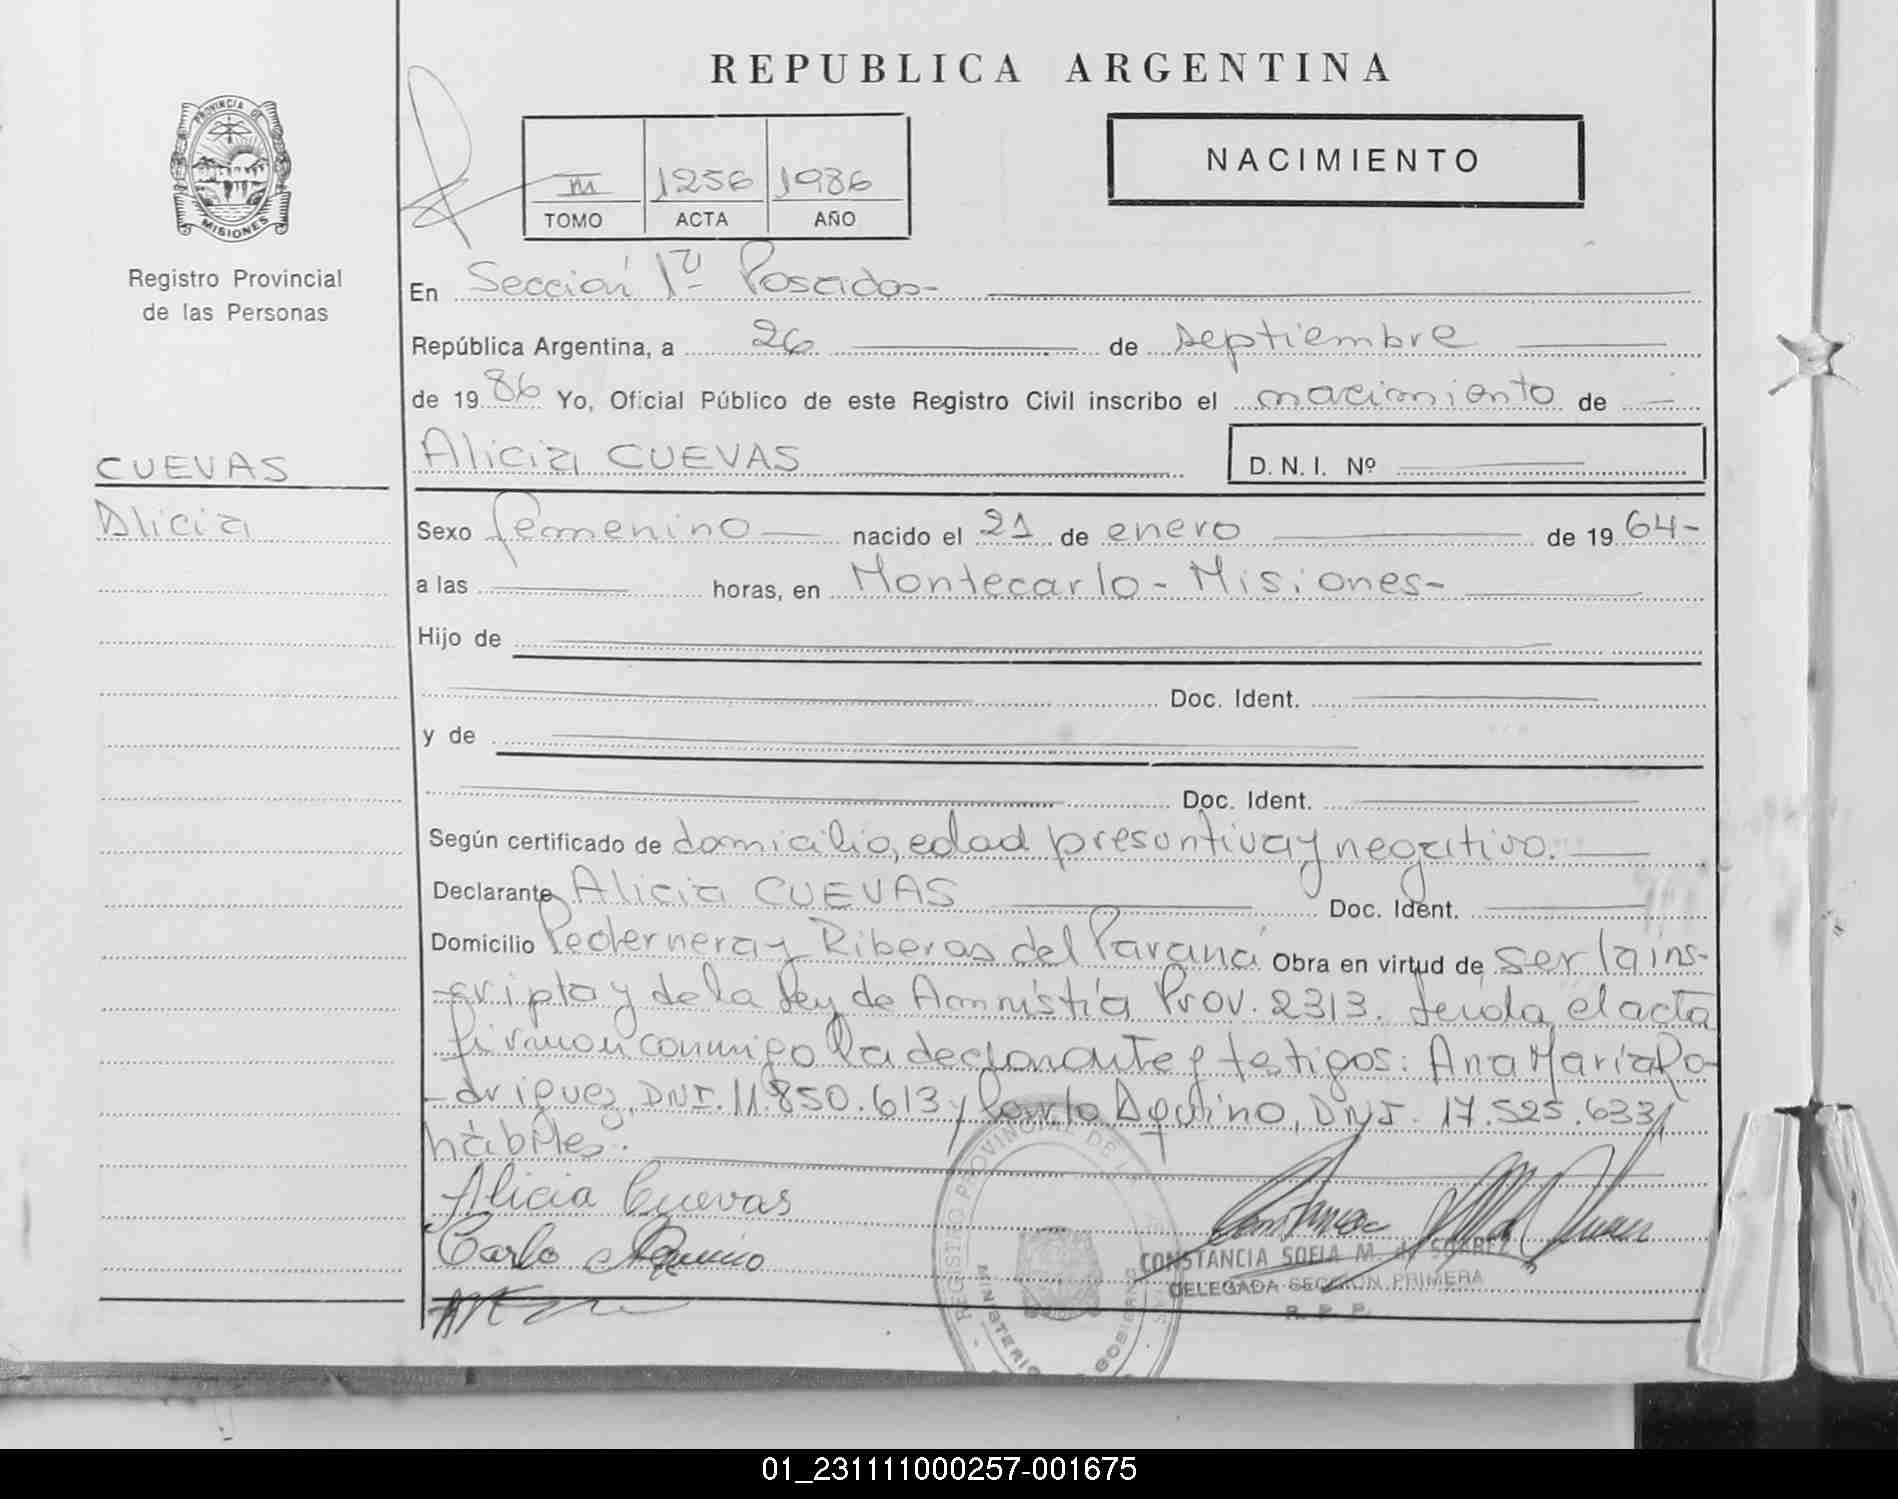 REPUBLICA ARGENTINA
PROVINCIA DE
MISIONES
Registro Provincial
de las Personas
III 1256 1986
TOMO ACTA AÑO
NACIMIENTO
En Sección 1ª Posadas-
República Argentina, a 26 de septiembre
de 1986 Yo, Oficial Público de este Registro Civil inscribo el nacimiento de
Alicia CUEVAS D. N. I. Nº
CUEVAS
Alicia
Sexo femenino nacido el 21 de enero de 1964-
a las horas, en Montecarlo - Misiones-
Hijo de
Doc. Ident.
y de
Doc. Ident.
Según certificado de domicilio, edad presuntiva y negativo.
Declarante Alicia CUEVAS Doc. Ident.
Domicilio Pedernera y Riberas del Paraná Obra en virtud de ser la ins-
-cripta y de la Ley de Amnistía Prov. 2313. Leída el acta
firman conmigo la declarante y testigos: Ana María Ro-
-driguez, DNI. 11.850.613 y Carlo Aquino, DNI. 17.525.633,
hábiles.
Alicia Cuevas
Carlo Aquino
CONSTANCIA SOFIA M. de SUAREZ
DELEGADA SECCION PRIMERA
R. P. P.
REGISTRO PROVINCIAL DE
MINISTERIO GOBIERNO
01_231111000257-001675